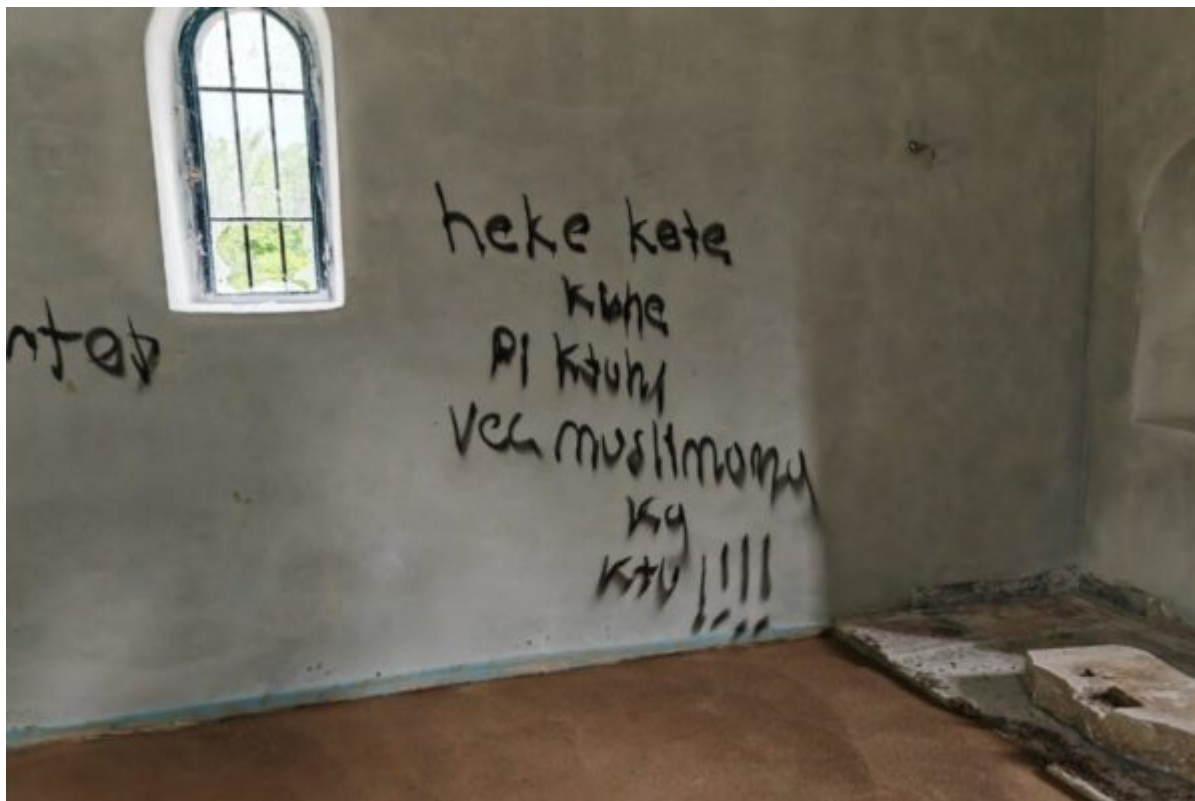 heke kete
kishe
pi ktuhj
Vec muslimomy
Ka
ktu !!!!